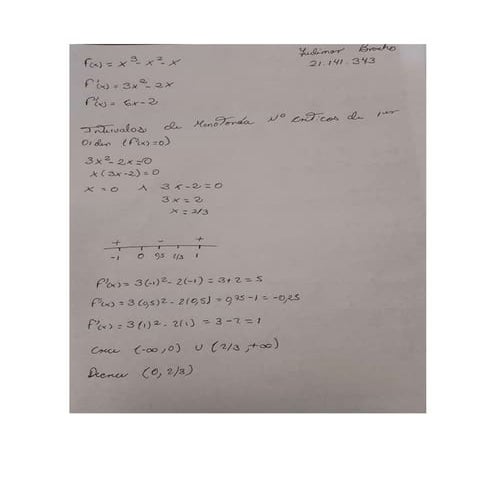 f(x) = x³ - x² - x
Bracho
21.141.343
f'(x) = 3x² - 2x
f''(x) = 6x - 2
Intervalos de Monotonía Nº criticos de 1er
Orden (f'(x)=0)
3x² - 2x = 0
x(3x-2) = 0
x = 0 ∧ 3x - 2 = 0
3x = 2
x = 2/3
+ - +
-1 0 0,5 2/3 1
f'(x) = 3(-1)² - 2(-1) = 3+2 = 5
f'(x) = 3(0,5)² - 2(0,5) = 0,75 - 1 = -0,25
f'(x) = 3(1)² - 2(1) = 3 - 2 = 1
Crece (-∞,0) ∪ (2/3,+∞)
Decrece (0, 2/3)